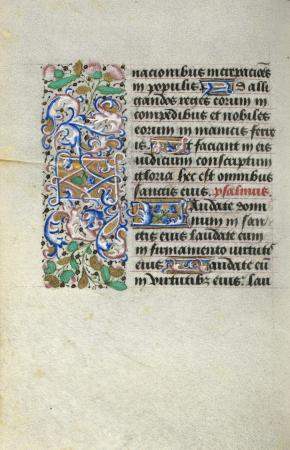 nacionibus increpaciões
in populis. Ad alli
gandos reges eorum in
compedibus et nobiles
eorum in manicis ferre
is. Ut faciant in eis
iudicium conscriptum
gloria hec est omnibus
sanctis eius. psalmus.
Laudate domi
num in sanc
tis eius laudate eum
in firmamento virtutis
eius. Laudate eū
in virtutibꝫ eius: lau